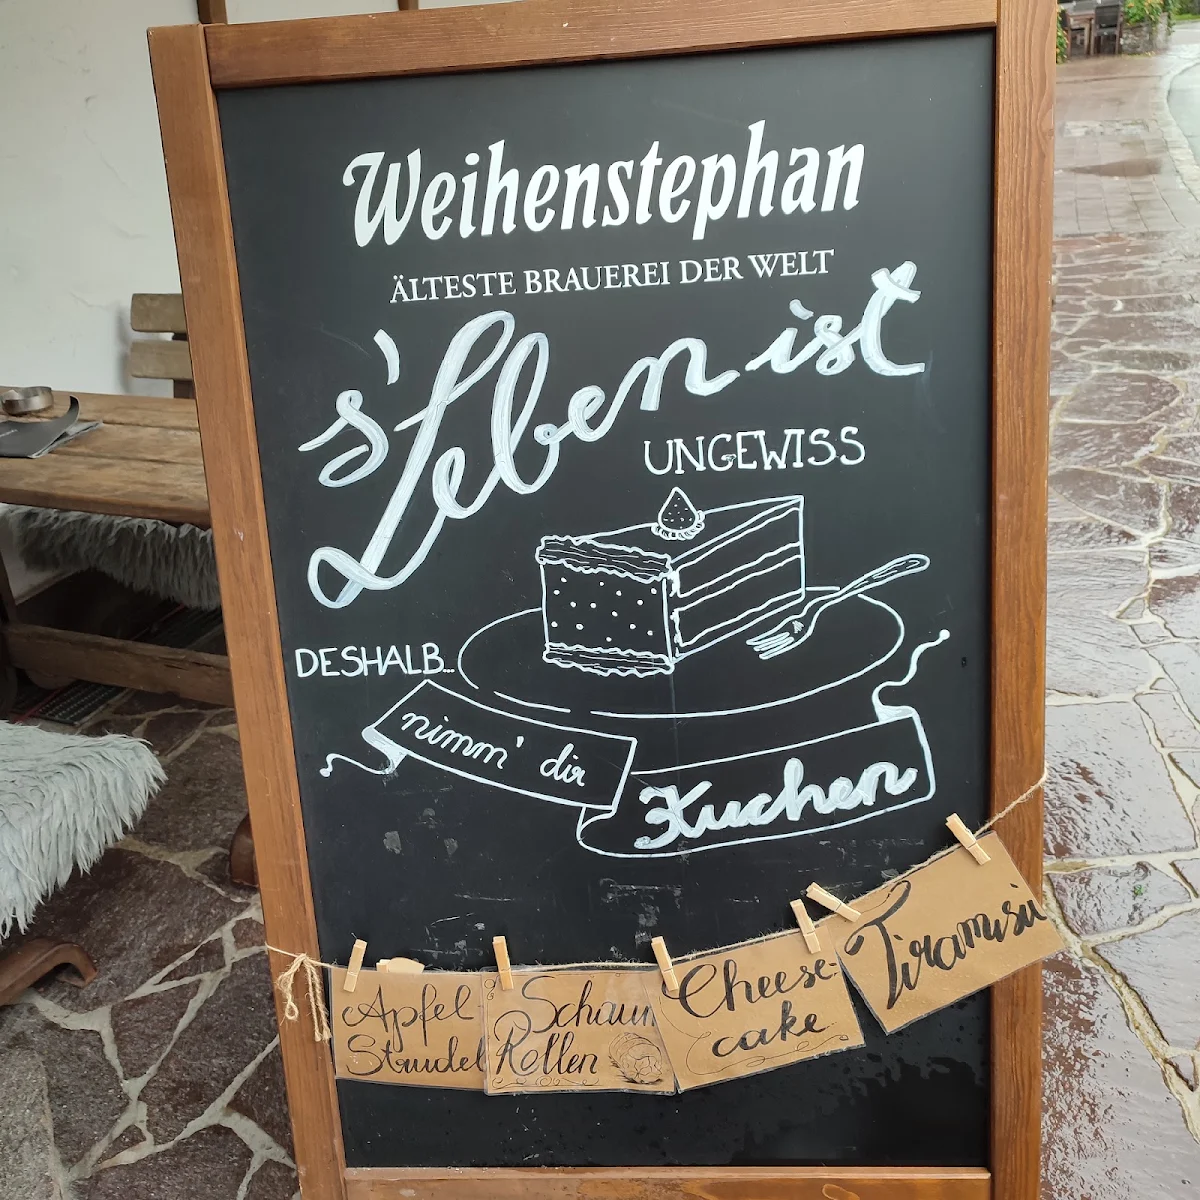 Weihenstephan
ÄLTESTE BRAUEREI DER WELT
s'Leben ist
UNGEWISS
DESHALB...
nimm' dir
Kuchen
Apfel
Strudel
Schaum
Rollen
Cheese-
cake
Tiramisu